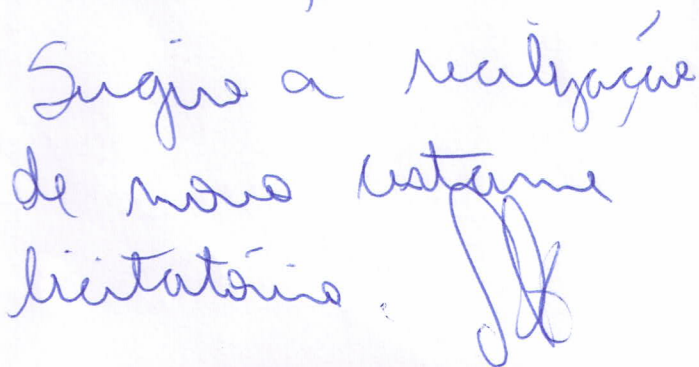 Sugiro a realização
de novo certame
licitatório.